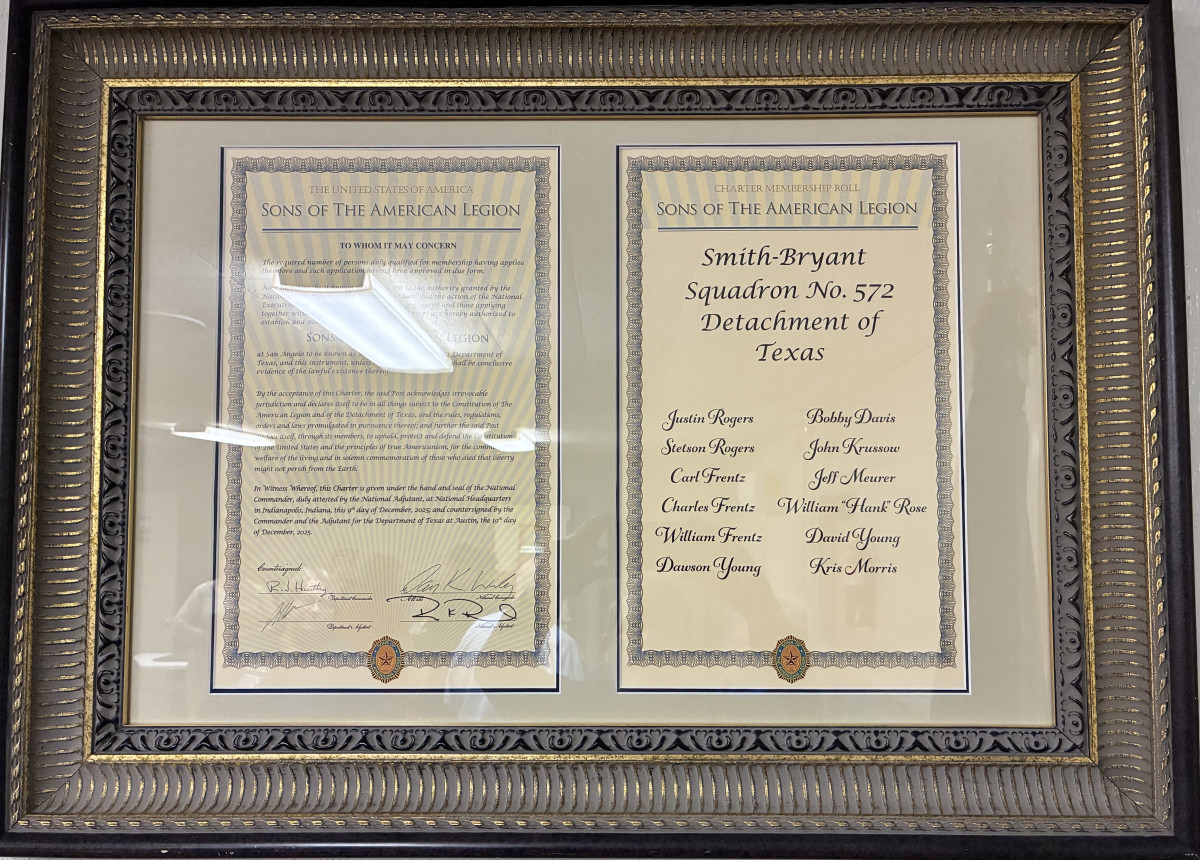 THE UNITED STATES OF AMERICA
SONS OF THE AMERICAN LEGION
TO WHOM IT MAY CONCERN
The required number of persons duly qualified for membership having applied
therefore and such application having been approved in due form.
the authority granted by the
and the action of the National
and those applying
together hereby authorized to
establish and
SONS LEGION
at San Angelo to be known as Department of
Texas, and this instrument, unless shall be conclusive
evidence of the lawful existence thereof
By the acceptance of this Charter, the said Post acknowledges irrevocable
jurisdiction and declares itself to be in all things subject to the Constitution of The
American Legion and of the Detachment of Texas, and the rules, regulations,
orders and laws promulgated in pursuance thereof; and further the said Post
itself, through its members, to uphold, protect and defend the Constitution
of the United States and the principles of true Americanism, for the common
welfare of the living and in solemn commemoration of those who died that liberty
might not perish from the Earth.
In Witness Whereof, this Charter is given under the hand and seal of the National
Commander, duly attested by the National Adjutant, at National Headquarters
in Indianapolis, Indiana, this 9th day of December, 2025; and countersigned by the
Commander and the Adjutant for the Department of Texas at Austin, the 19th day
of December, 2025.
Countersigned:
Department Commander
National Commander
Department Adjutant
National Adjutant
CHARTER MEMBERSHIP ROLL
SONS OF THE AMERICAN LEGION
Smith-Bryant
Squadron No. 572
Detachment of
Texas
Justin Rogers Bobby Davis
Stetson Rogers John Krussow
Carl Frentz Jeff Meurer
Charles Frentz William "Hank" Rose
William Frentz David Young
Dawson Young Kris Morris